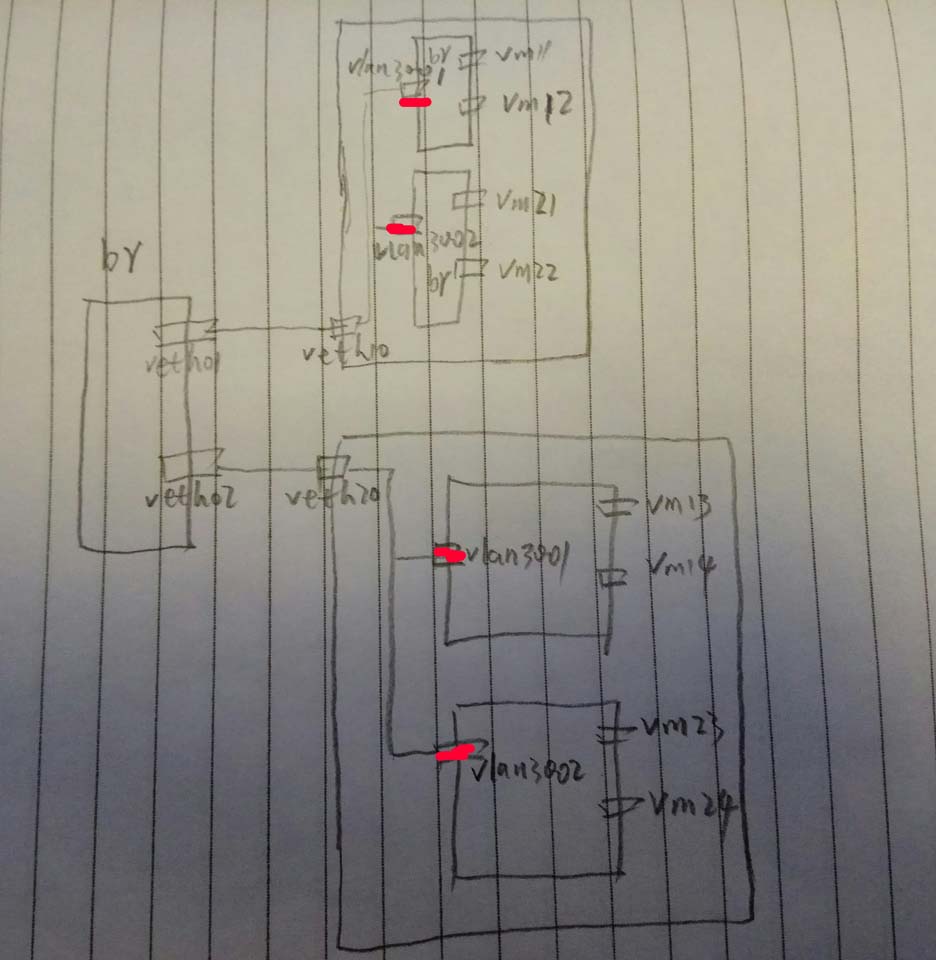 br
vm11
vlan3001
vm12
vm21
vlan3002
br
vm22
br
veth01
veth10
veth02
veth20
vm13
vlan3001
vm14
vm23
vlan3002
vm24